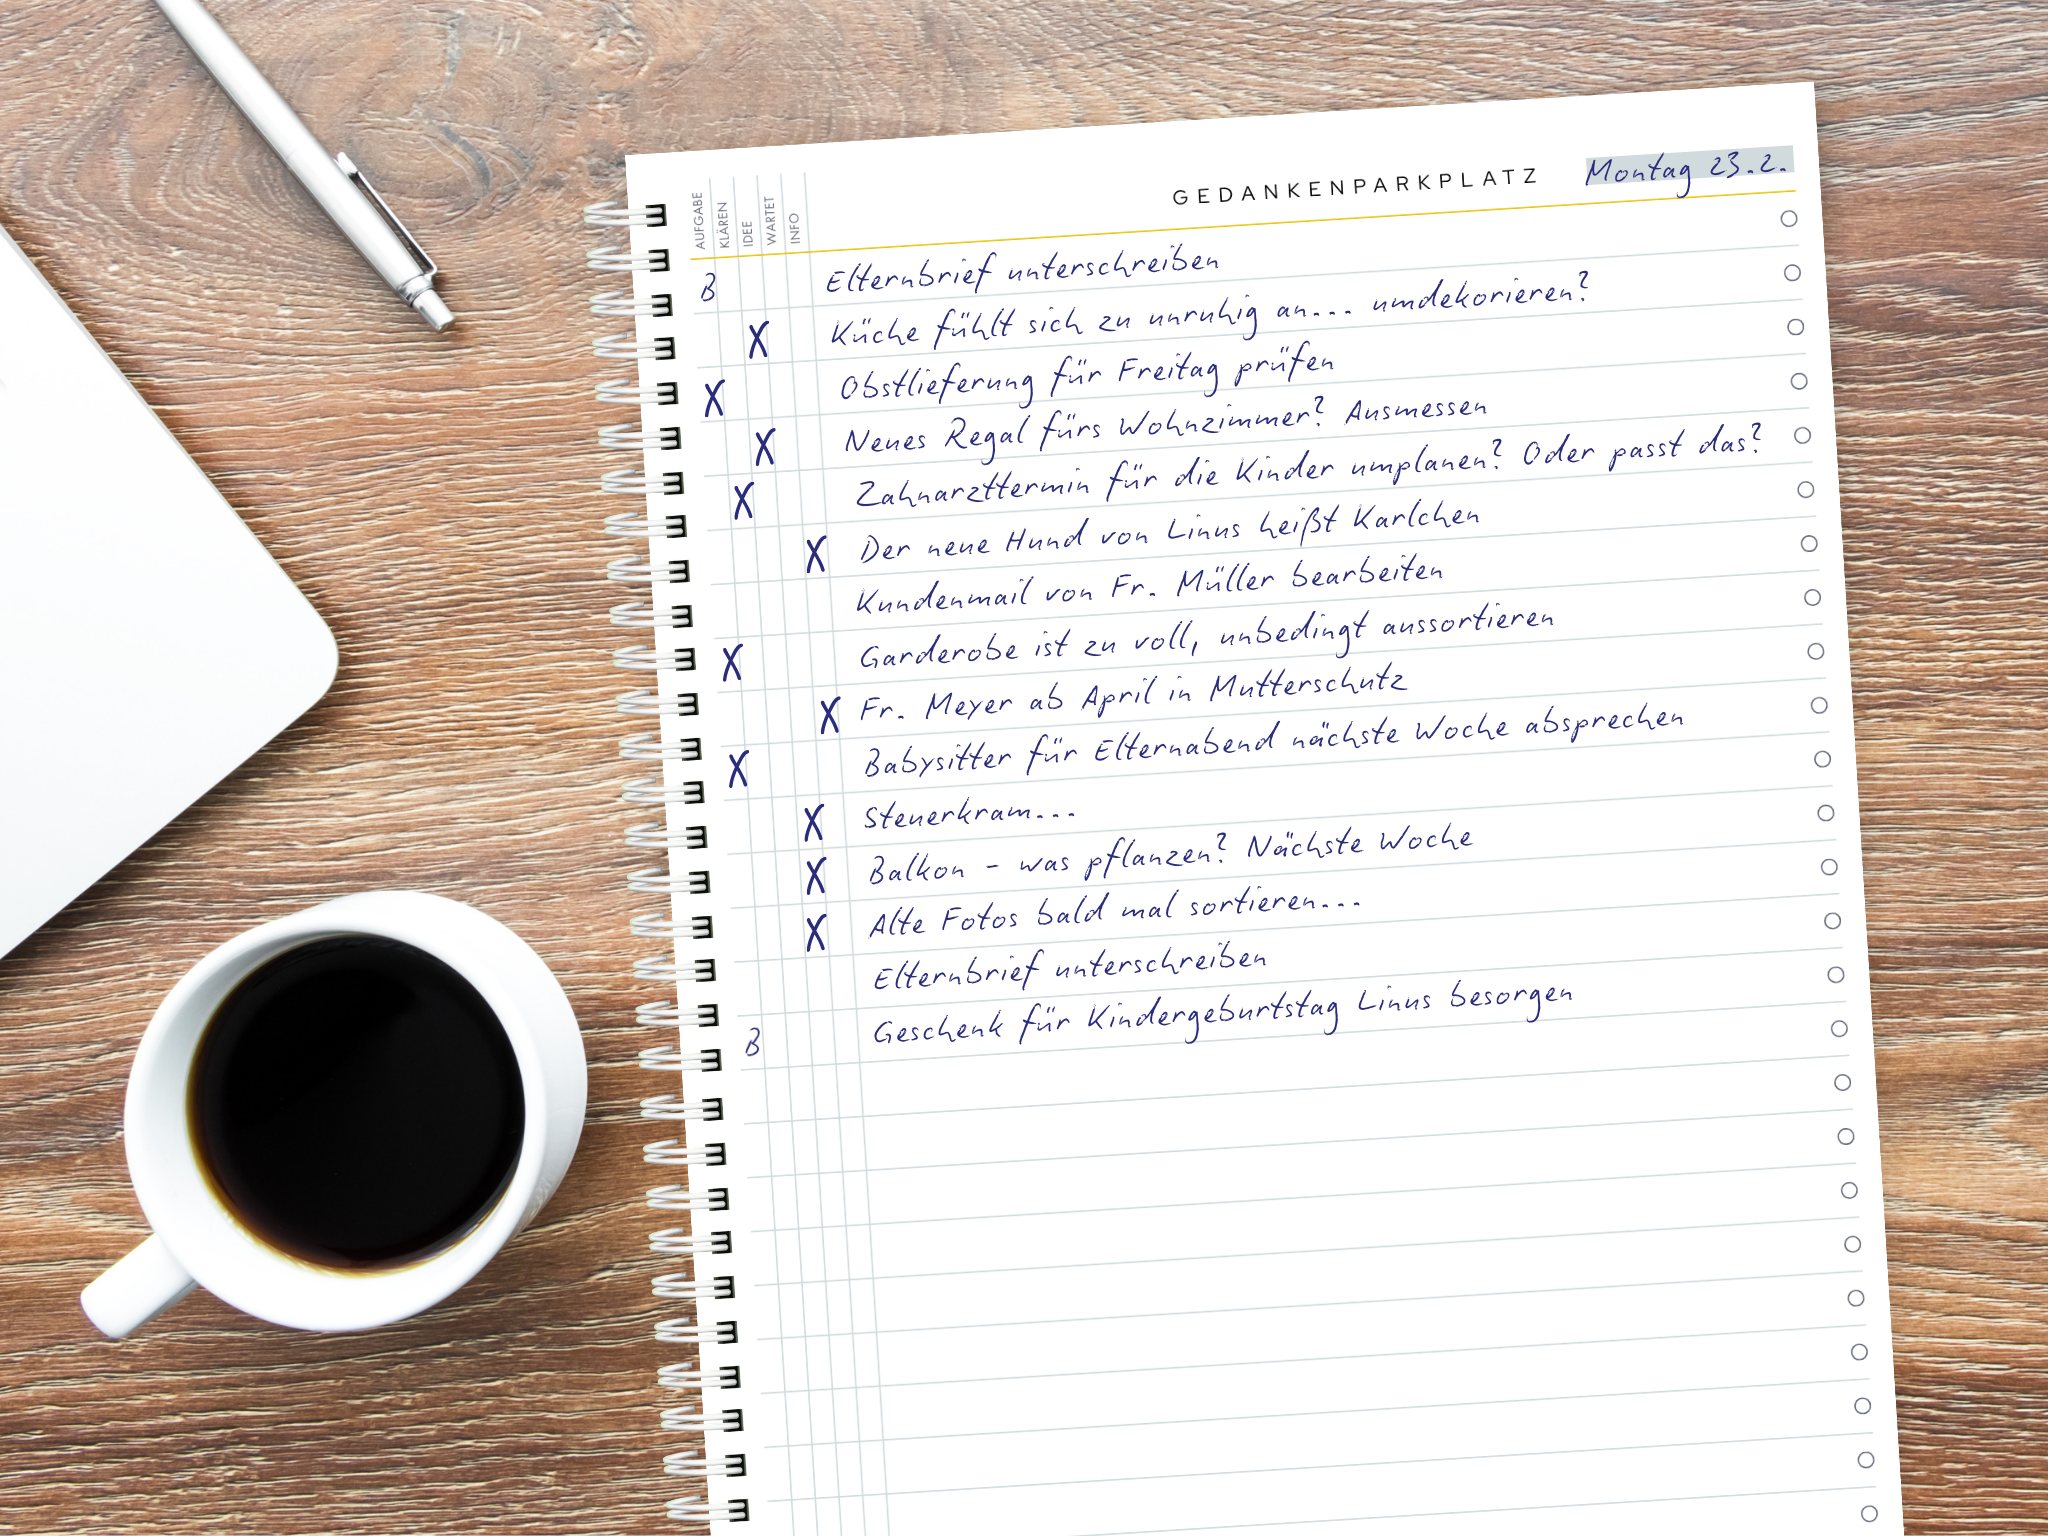 GEDANKENPARKPLATZ Montag 23.2.
AUFGABE KLÄREN IDEE WARTET INFO
B Elternbrief unterschreiben
X Küche fühlt sich zu unruhig an... umdekorieren?
X Obstlieferung für Freitag prüfen
X Neues Regal fürs Wohnzimmer? Ausmessen
X Zahnarzttermin für die Kinder umplanen? Oder passt das?
X Der neue Hund von Linus heißt Karlchen
Kundenmail von Fr. Müller bearbeiten
X Garderobe ist zu voll, unbedingt aussortieren
X Fr. Meyer ab April in Mutterschutz
X Babysitter für Elternabend nächste Woche absprechen
X Steuerkram...
X Balkon - was pflanzen? Nächste Woche
X Alte Fotos bald mal sortieren...
Elternbrief unterschreiben
B Geschenk für Kindergeburtstag Linus besorgen